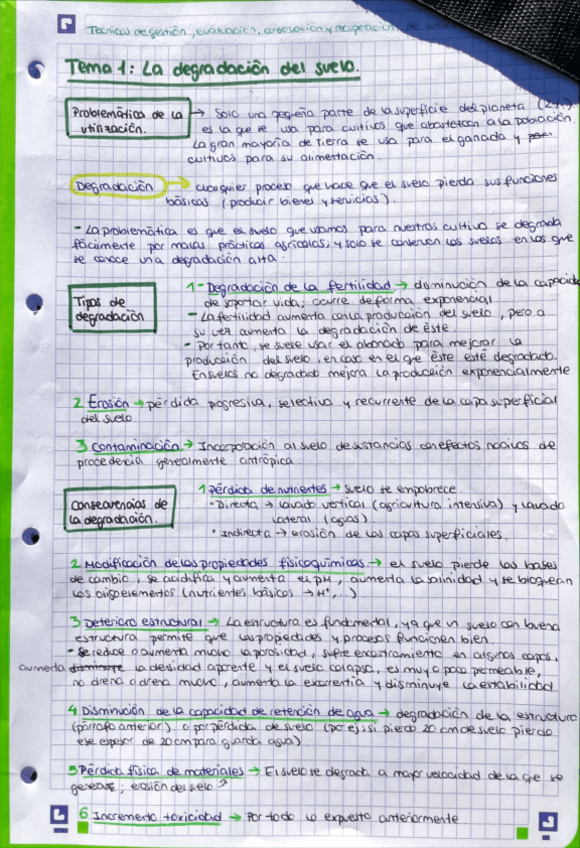 Técnicas de gestión, evaluación, conservación y recuperación de
Tema 1: La degradación del suelo.
Problemática de la utilización. → Solo una pequeña parte de la superficie del planeta
es la que se usa para cultivos que abastezcan a la población.
La gran mayoría de tierra se usa para el ganado y
cultivos para su alimentación.
Degradación → cualquier proceso que hace que el suelo pierda sus funciones
básicas (producir bienes y servicios).
- La problemática es que el suelo que usamos para nuestros cultivo se degrada
fácilmente por malas prácticas agrícolas, y solo se conservan los suelos en los que
se conoce una degradación alta.
Tipos de degradación
1- Degradación de la fertilidad → disminución de la capacida
de soportar vida; ocurre de forma exponencial
- La fertilidad aumenta con la producción del suelo, pero a
su vez aumenta la degradación de éste.
- Por tanto, se suele usar el abonado para mejorar la
producción del suelo, en caso en el que éste esté degradado.
En suelos no degradado mejora la producción exponencialmente
2 Erosión → pérdida progresiva, selectiva y recurrente de la capa superficial
del suelo
3 Contaminación → Incorporación al suelo de sustancias con efectos nocivos de
procedencia generalmente antrópica.
Consecuencias de la degradación.
1 Pérdida de nutrientes → suelo se empobrece.
• Directa → lavado vertical (agricultura intensiva) y lavado
lateral (aguas).
• Indirecta → erosión de las capas superficiales.
2 Modificación de las propiedades fisicoquímicas → el suelo pierde las bases
de cambio, se acidifica y aumenta el pH, aumenta la salinidad y se bloquean
los oligoelementos (nutrientes básicos → H⁺, ...)
3 Deterioro estructural → La estructura es fundamental, ya que un suelo con buena
estructura permite que las propiedades y procesos funcionen bien.
- Se reduce o aumenta mucho la porosidad, sufre encostramiento en algunas capas,
aumenta disminuye la densidad aparente y el suelo colapsa, es muy o poco permeable,
no drena o drena mucho, aumenta la escorrentía y disminuye la estabilidad
4 Disminución de la capacidad de retención de agua → degradación de la estructura
(párrafo anterior) o por pérdida de suelo (por ej; si pierdo 20 cm de suelo pierdo
ese espesor de 20 cm para guarda agua)
5 Pérdida física de materiales → El suelo se degrada a mayor velocidad de la que se
genera; erosión del suelo
6 Incremento toxicidad → Por todo lo expuesto anteriormente